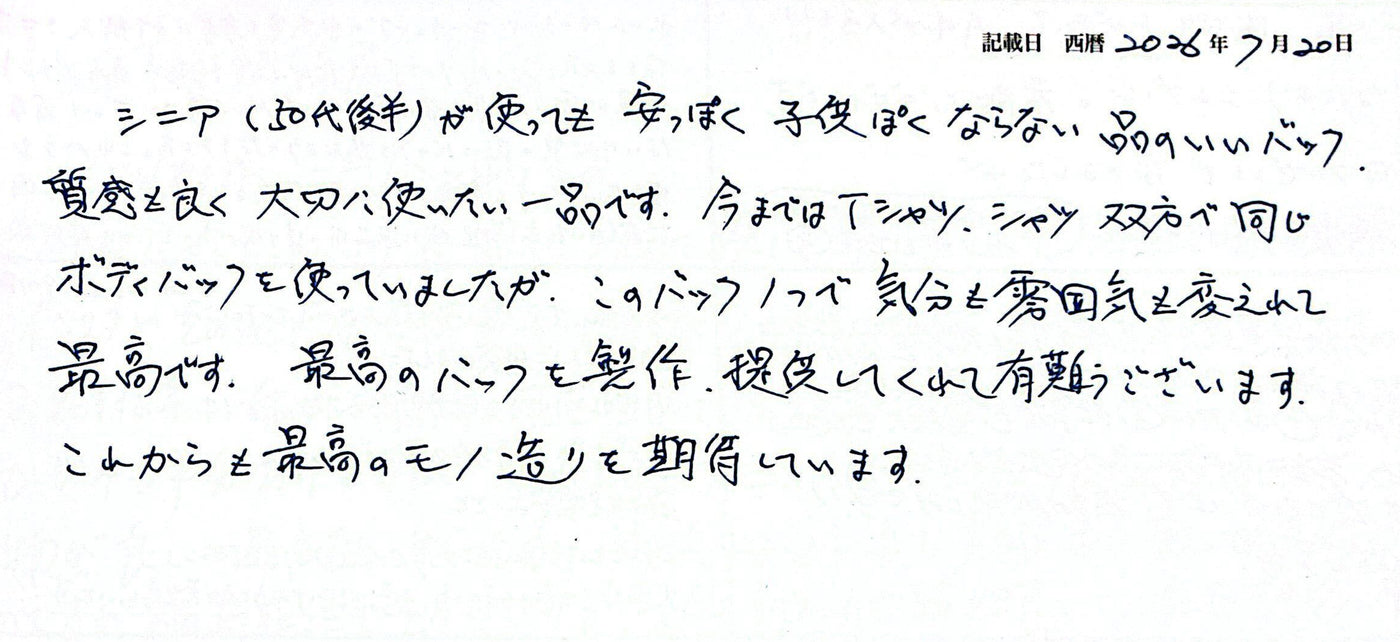 記載日 西暦 2026年7月20日
シニア(50代後半)が使っても 安っぽく 子供ぽく ならない 品のいいバック.
質感も良く 大切に使いたい一品です. 今まではTシャツ、シャツ 双方で 同じ
ボディバックを使っていましたが、このバック1つで 気分も雰囲気も変えれて
最高です. 最高のバックを製作、提供してくれて有難うございます.
これからも最高のモノ造りを期待しています.